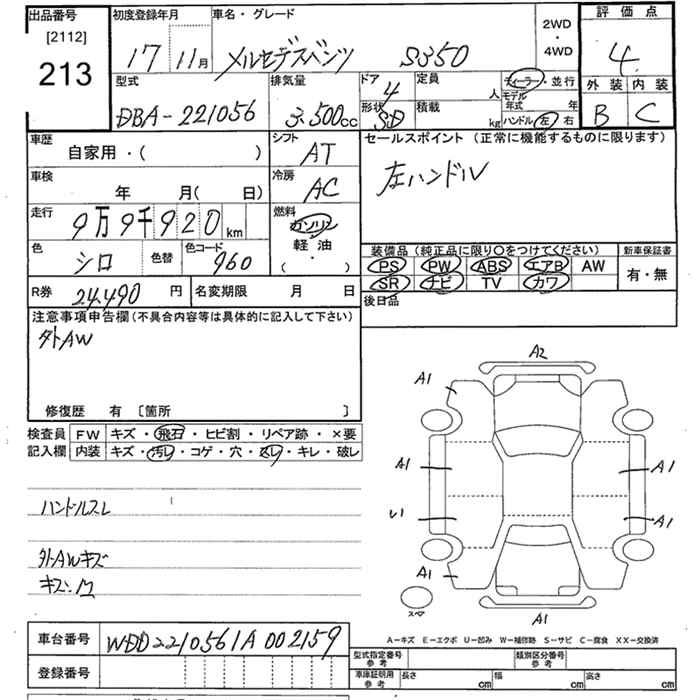 出品番号 [2112] 213
初度登録年月 17 11月
車名・グレード メルセデスベンツ S350
2WD・4WD
評価点 4
外装 B 内装 C
型式 DBA-221056
排気量 3.500cc
ドア 4
形状 SD
定員 人
積載 kg
ディーラー・並行
モデル年式 年
ハンドル 左 右
車歴 自家用・( )
シフト AT
セールスポイント (正常に機能するものに限ります)
左ハンドル
車検 年 月( 日)
冷房 AC
走行 9万9千920km
燃料 ガソリン 軽油 ( ・ )
色 シロ 色替 色コード 960
装備品 (純正品に限り〇をつけてください)
新車保証書
PS PW ABS エアB AW
有・無
SR ナビ TV カワ
R券 24,490 円 名変期限 月 日
後日品
注意事項申告欄 (不具合内容等は具体的に記入して下さい)
外AW
修復歴 有 [箇所 ]
検査員 FW キズ・飛石・ヒビ割・リペア跡・×要
記入欄 内装 キズ・汚レ・コゲ・穴・スレ・キレ・破レ
ハンドルスレ
外AWキズ
A2
A1
A1
A1
A1
A1
A1
A1
スペア
A-キズ E-エクボ U-凹み W-補修跡 S-サビ C-腐食 XX-交換済
車台番号 WDD2210561A002159
登録番号
型式指定番号 参考
類別区分番号 参考
車庫証明用 参考 長さ cm 幅 cm 高さ cm